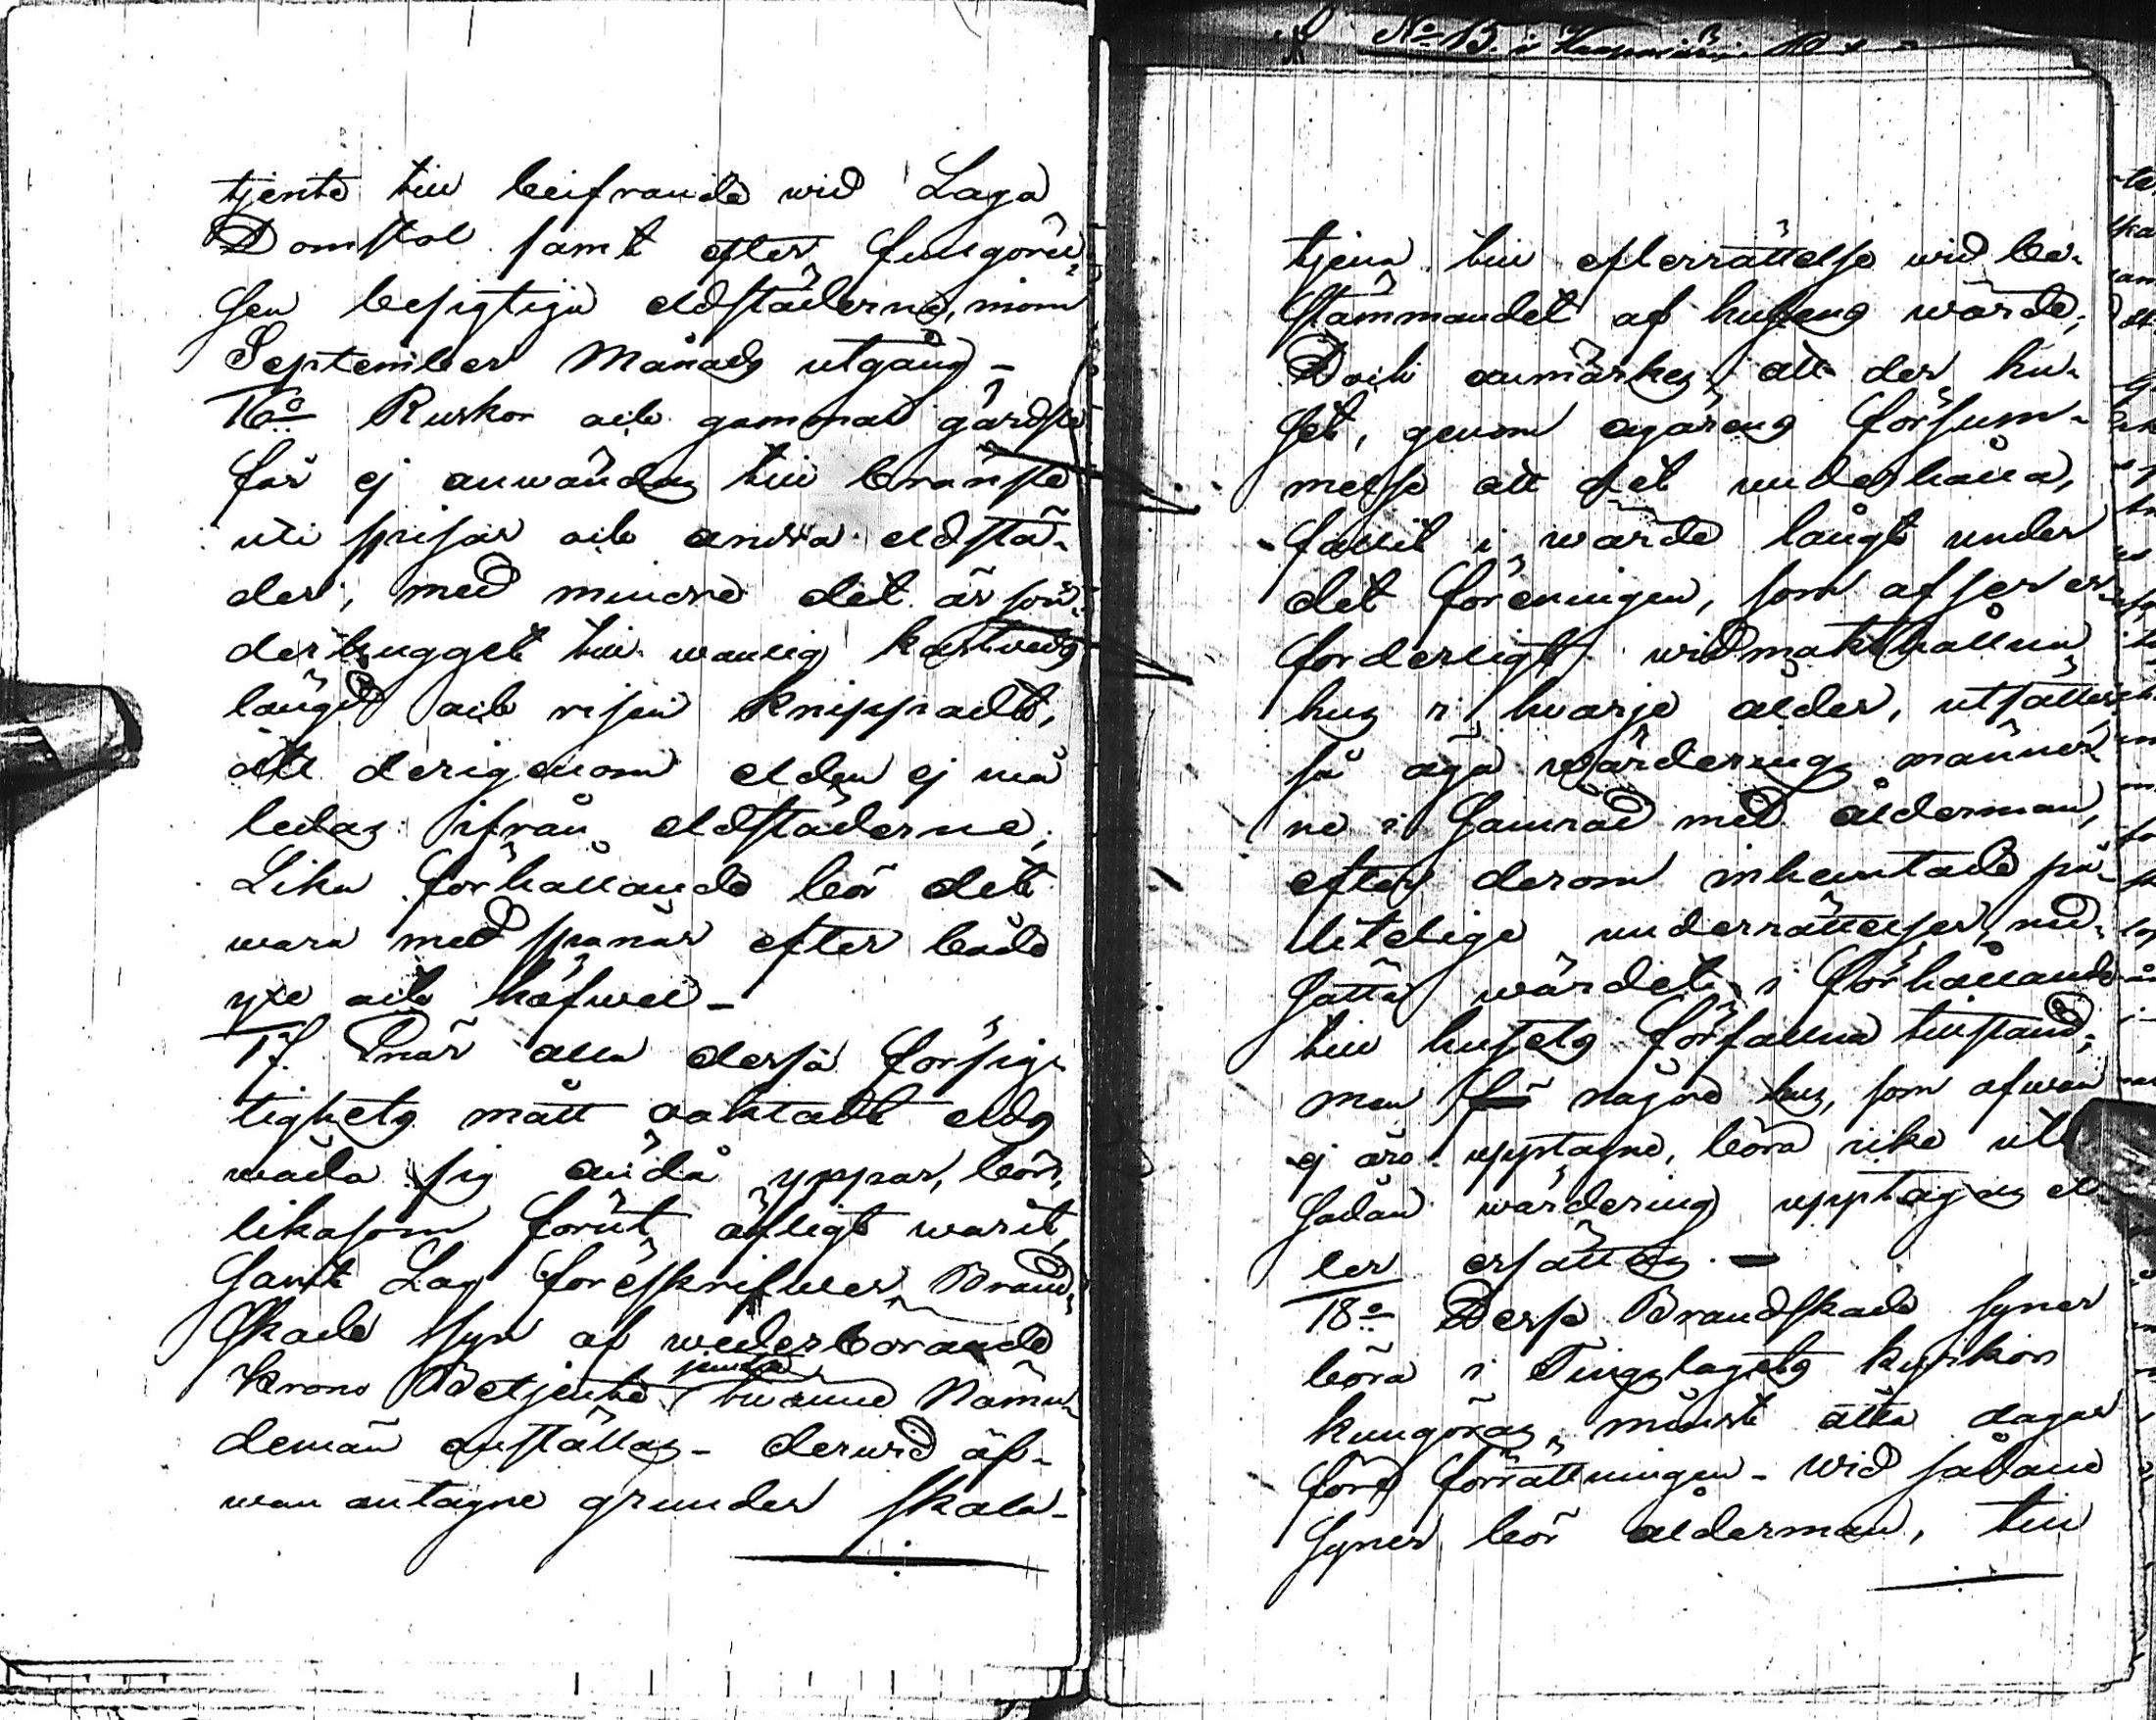 tjente till beifrande wid Laga
Domstol samt efter fullgörel-
sen besigtiga eldstäderne, inom
September Månads utgång –
16o Ruskor och gammal gärdsle
får ej anwändas till bränsle
uti spisar och andra eldstä-
der, med mindre det är sön-
derhugget till wanlig kastweds
längd och risen knippadt,
att derigenom elden ej må
ledas ifrån eldstäderne,
Lika förhållande bör det
wara med spånar efter både
yxe och häfwel –
17. När alla dessa försig-
tighets mått aaktadt elds
wåda sig ändå yppar, bör,
likasom förut öfligt warit,
samt Lag föreskrifwer, Brand-
skade syn af wederbörande
Krono Betjente jemte twenne Nämn-
demän anställas – derwid äf-
wan antagne grunder skola –
No 15.
tjena till efterrättelse wid be-
stämmandet af husens wärde;
Doch anmärkes, att der hu-
set, genom ägarens försum-
melse att det underhålla,
fallit i wärde långt under
det föreningen, som afser er-
forderligt widmakthållna
hus i hwarje ålder, utsätter,
så äga wärderings männer-
ne i samråd med ålderman,
efter derom inhemtade på-
litelige underrättelser, ned-
sätta wärdet, i förhållande
till husets förfallna tillstånd;
men få någre hus, som ofwan
ej äro upptagne, böra icke ut
sådan wärdering upptagas el-
ler ersättas. –
18o Desse Brandskade syner
böra i Tingslagets kyrkor
kungöras, minst åtta dagar
före förrättningen – wid sådane
syner bör ålderman, till